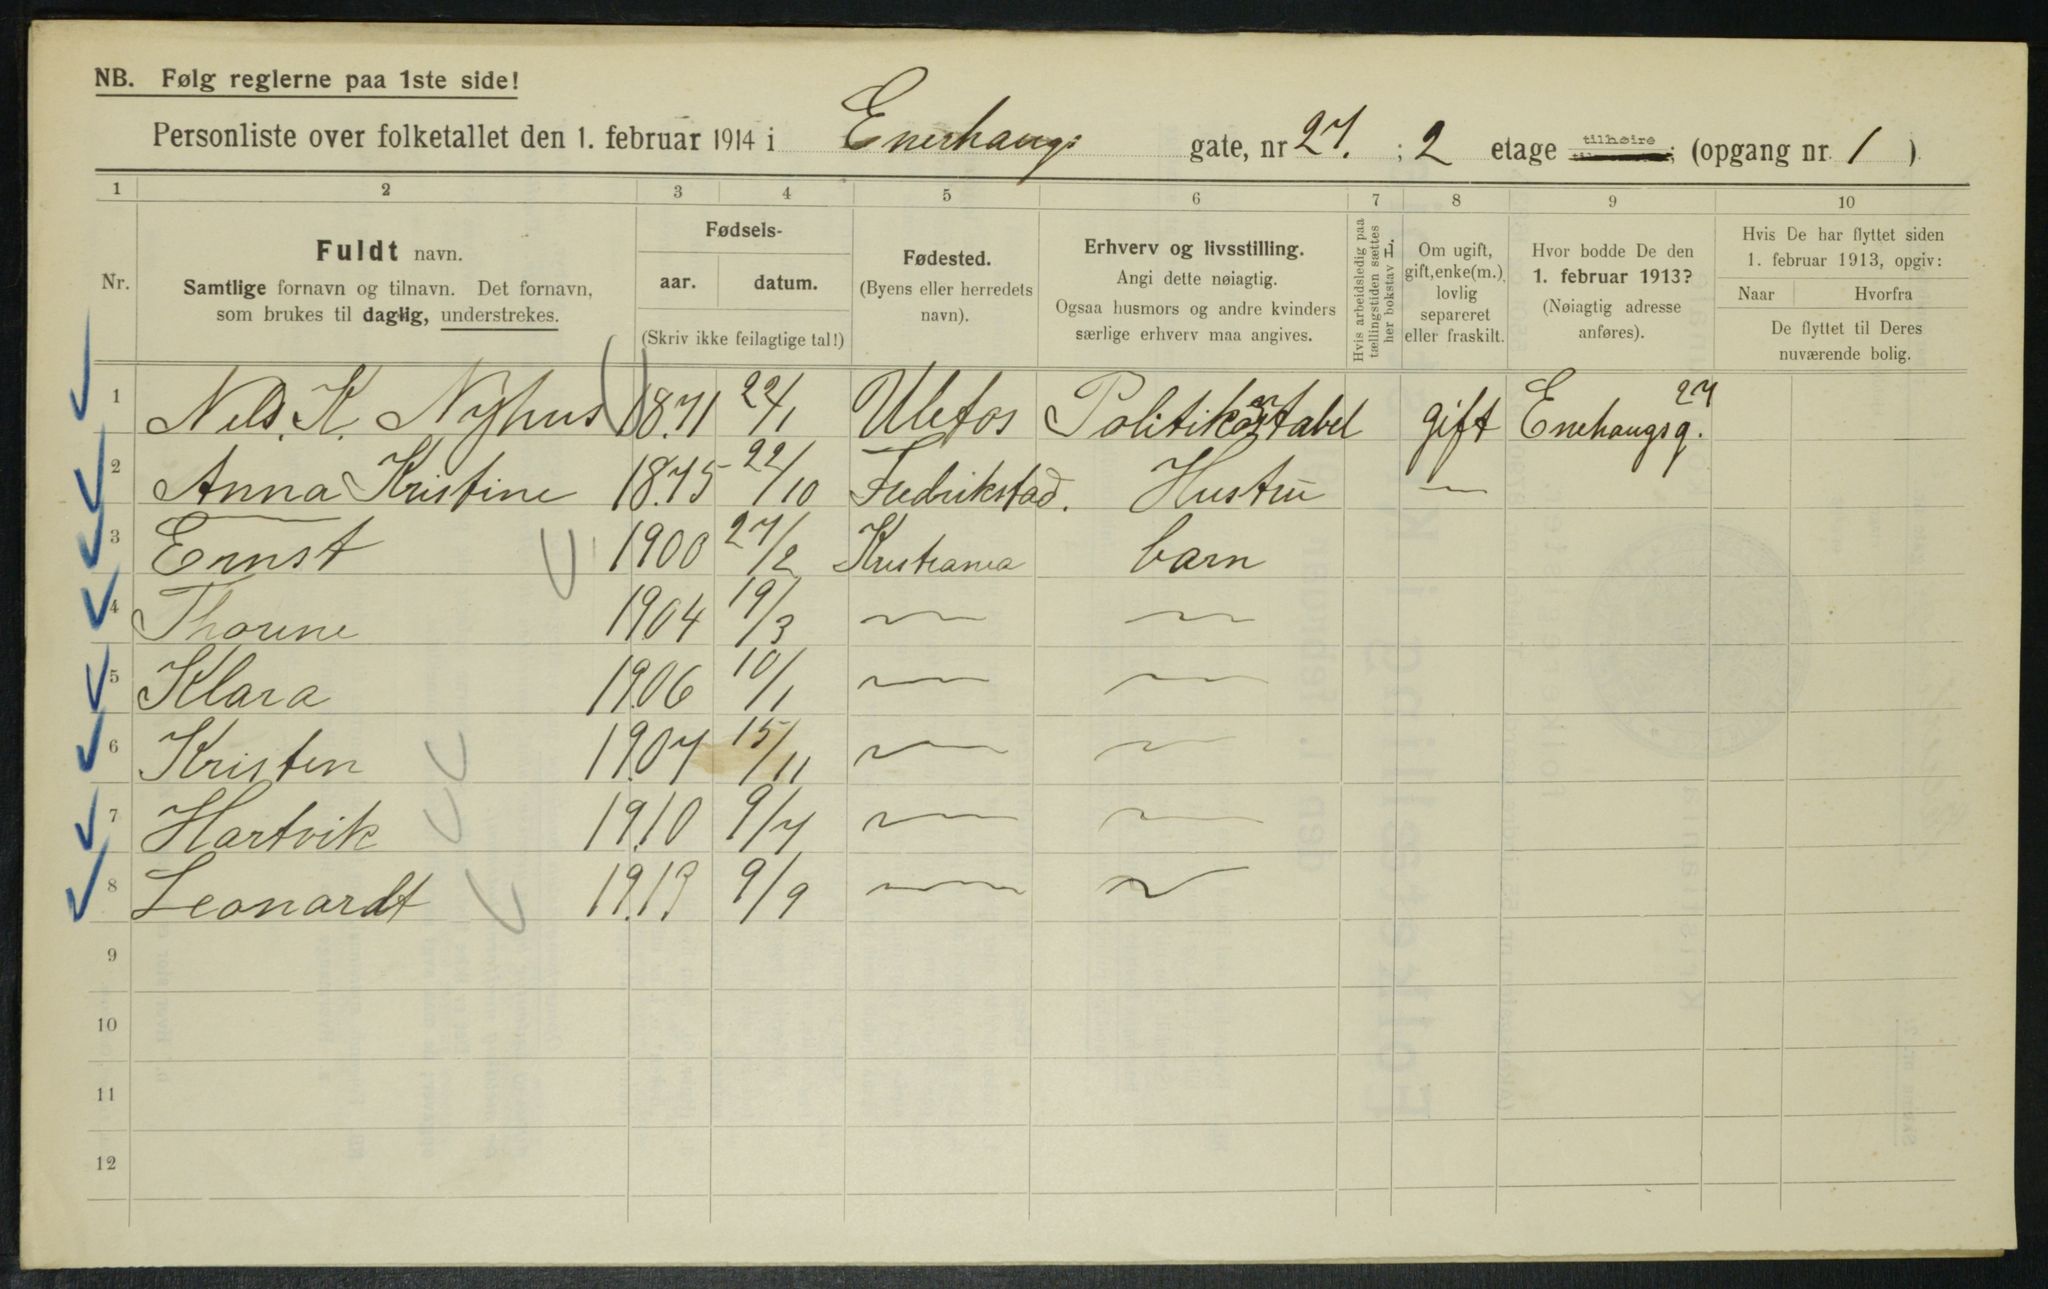 NB. Følg reglerne paa 1ste side!
Personliste over folketallet den 1. februar 1914 i Enerhaugs gate, nr 27. ; 2 etage tilhøire ; (opgang nr. 1 )
1 2 3 4 5 6 7 8 9 10
Nr.
Fuldt navn.
Samtlige fornavn og tilnavn. Det fornavn,
som brukes til daglig, understrekes.
Fødsels-
aar. datum.
(Skriv ikke feilagtige tal!)
Fødested.
(Byens eller herredets
navn).
Erhverv og livsstilling.
Angi dette nøiagtig.
Ogsaa husmors og andre kvinders
særlige erhverv maa angives.
Hvis arbeidsledig paa
tællingstiden sættes
her bokstav L.
Om ugift,
gift, enke(m.),
lovlig
separeret
eller fraskilt.
Hvor bodde De den
1. februar 1913?
(Nøiagtig adresse
anføres).
Hvis De har flyttet siden
1. februar 1913, opgiv:
Naar Hvorfra
De flyttet til Deres
nuværende bolig.
1 Nils. K. Nyhus 1871 22/1 Ulefos Politikonstabel gift Enehaugsg. 27
2 Anna Kristine 1875 22/10 Fredrikstad. Hustru —
3 Ernst 1900 27/2 Kristiania barn
4 Thorine 1904 19/3 — —
5 Klara 1906 10/1 — —
6 Kristen 1907 15/11 — —
7 Hartvik 1910 9/7 — —
8 Leonardt 1913 9/9 — —
9
10
11
12